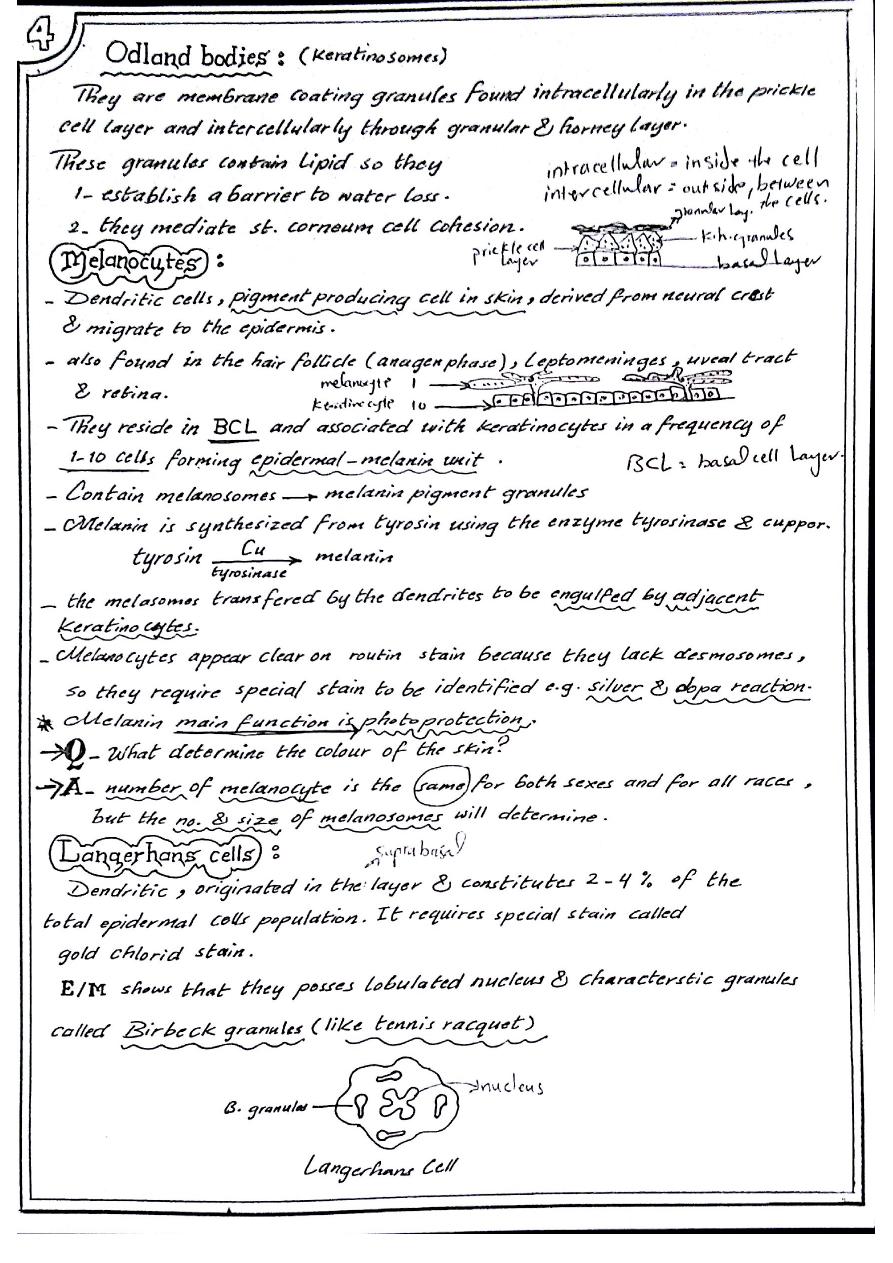 4
Odland bodies : (Keratinosomes)
They are membrane coating granules found intracellularly in the prickle
cell layer and intercellularly through granular & horney layer.
These granules contain Lipid so they
1- establish a barrier to water loss.
2- they mediate st. corneum cell cohesion.
intracellular = inside the cell
intercellular = outside, between
the cells.
granular lay.
prickle cell
layer
k.h.granules
basal Layer
Melanocytes :
- Dendritic cells, pigment producing cell in skin, derived from neural crest
& migrate to the epidermis.
- also found in the hair follicle (anagen phase), Leptomeninges, uveal tract
& retina.
melanocyte 1
Keratinocyte 10
- They reside in BCL and associated with keratinocytes in a frequency of
1-10 cells forming epidermal-melanin unit .
BCL = basal cell Layer.
- Contain melanosomes → melanin pigment granules
- Melanin is synthesized from tyrosin using the enzyme tyrosinase & cuppor.
tyrosin Cu → melanin
tyrosinase
- the melasomes transfered by the dendrites to be engulfed by adjacent
Keratinocytes.
- Melanocytes appear clear on routin stain because they lack desmosomes,
so they require special stain to be identified e.g. silver & dopa reaction.
* Melanin main function is photoprotection.
→Q- What determine the colour of the skin?
→A- number of melanocyte is the same for both sexes and for all races,
but the no. & size of melanosomes will determine.
Langerhans cells :
suprabasal
Dendritic, originated in the layer & constitutes 2-4% of the
total epidermal cells population. It requires special stain called
gold chlorid stain.
E/M shows that they posses lobulated nucleus & characterstic granules
called Birbeck granules (like tennis racquet)
nucleus
B. granules
Langerhans Cell